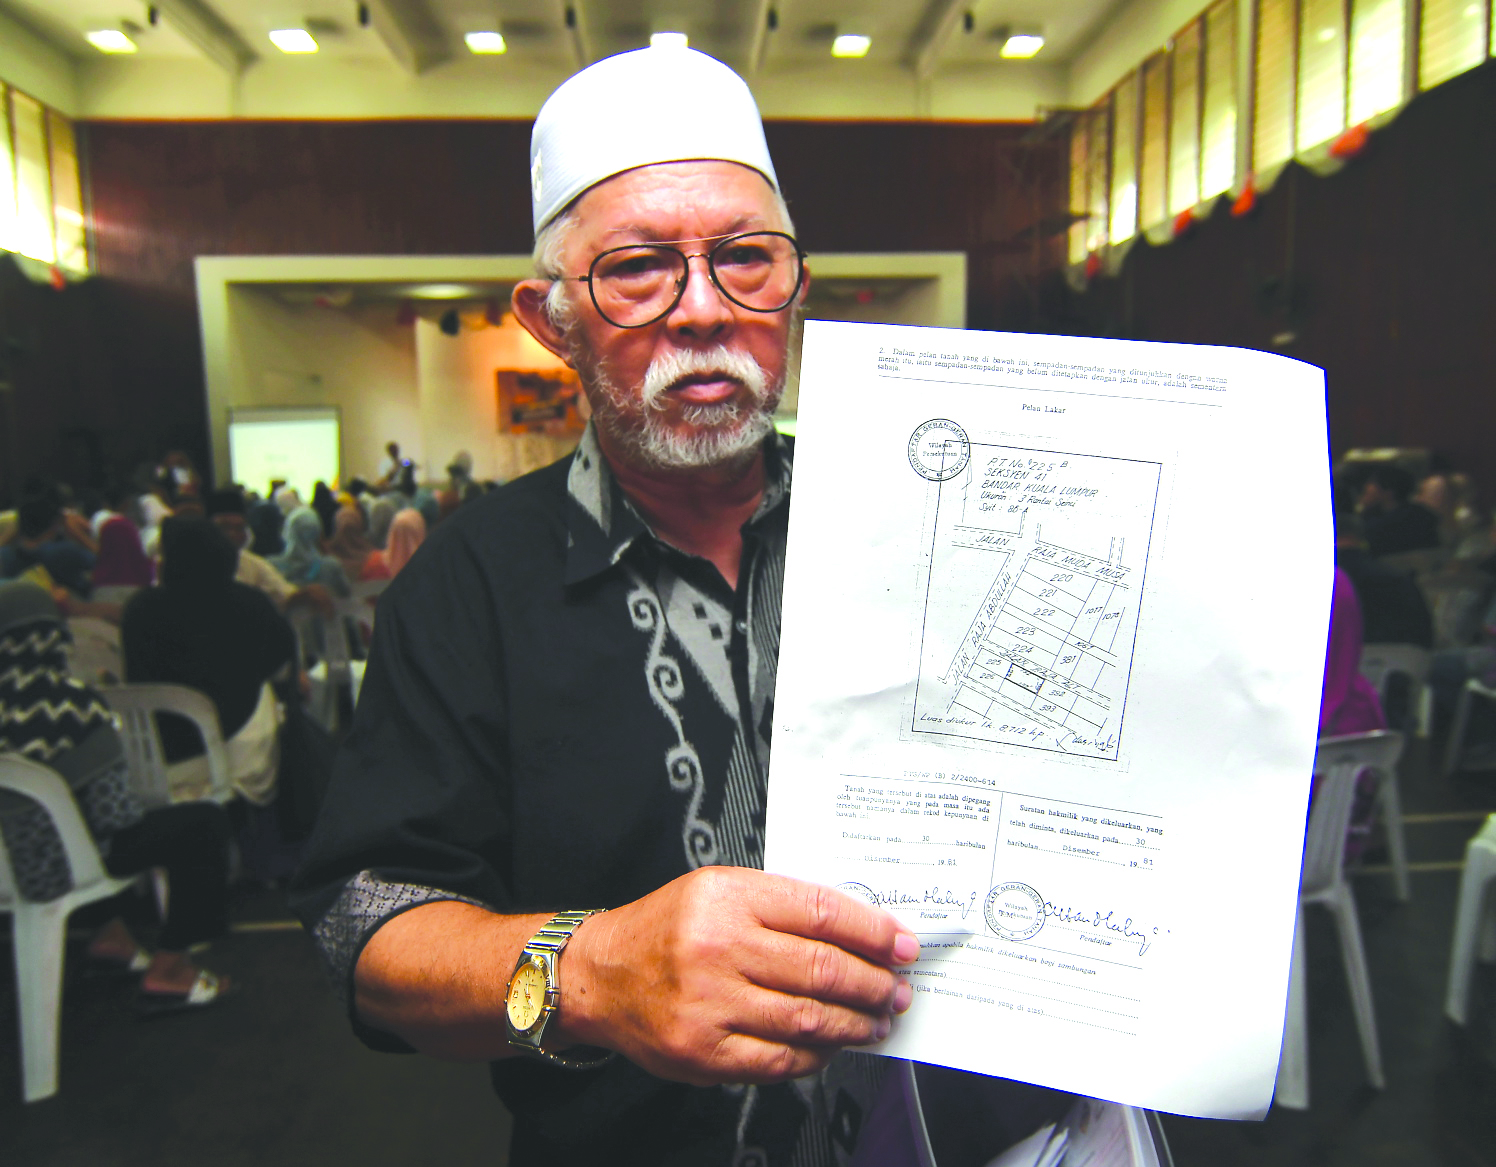 2. Dalam pelan tanah yang di bawah ini, sempadan-sempadan yang ditunjukkan dengan warna
merah itu, iaitu sempadan-sempadan yang belum ditetapkan dengan jalan ukur, adalah sementara
sahaja.
Pelan Lakar
PENDAFTAR GERAN-GERAN TANAH
Wilayah
Persekutuan
P.T. No. 225 B
SEKSYEN 41
BANDAR KUALA LUMPUR
Ukuran : 3 Rantai Senci
Syit : 86-A
JALAN RAJA MUDA MUSA
JALAN RAJA ABDULLAH
220
221
222
223
224
1077
1078
381
225
226
382
383
Luas diukur lk. 8,712 k.p.
(B) 2/2400-614
Tanah yang tersebut di atas adalah dipegang
oleh tuanpunyanya yang pada masa itu ada
tersebut namanya dalam rekod kepunyaan di
bawah ini:
Didaftarkan pada 30 haribulan
Disember, 19 81
Pendaftar
Suratan hakmilik yang dikeluarkan, yang
telah diminta, dikeluarkan pada 30
haribulan Disember, 19 81
PENDAFTAR GERAN-GERAN TANAH
Wilayah
Persekutuan
Pendaftar
apabila hakmilik dikeluarkan bagi sambungan
atas sementara)
(jika berlainan daripada yang di atas)